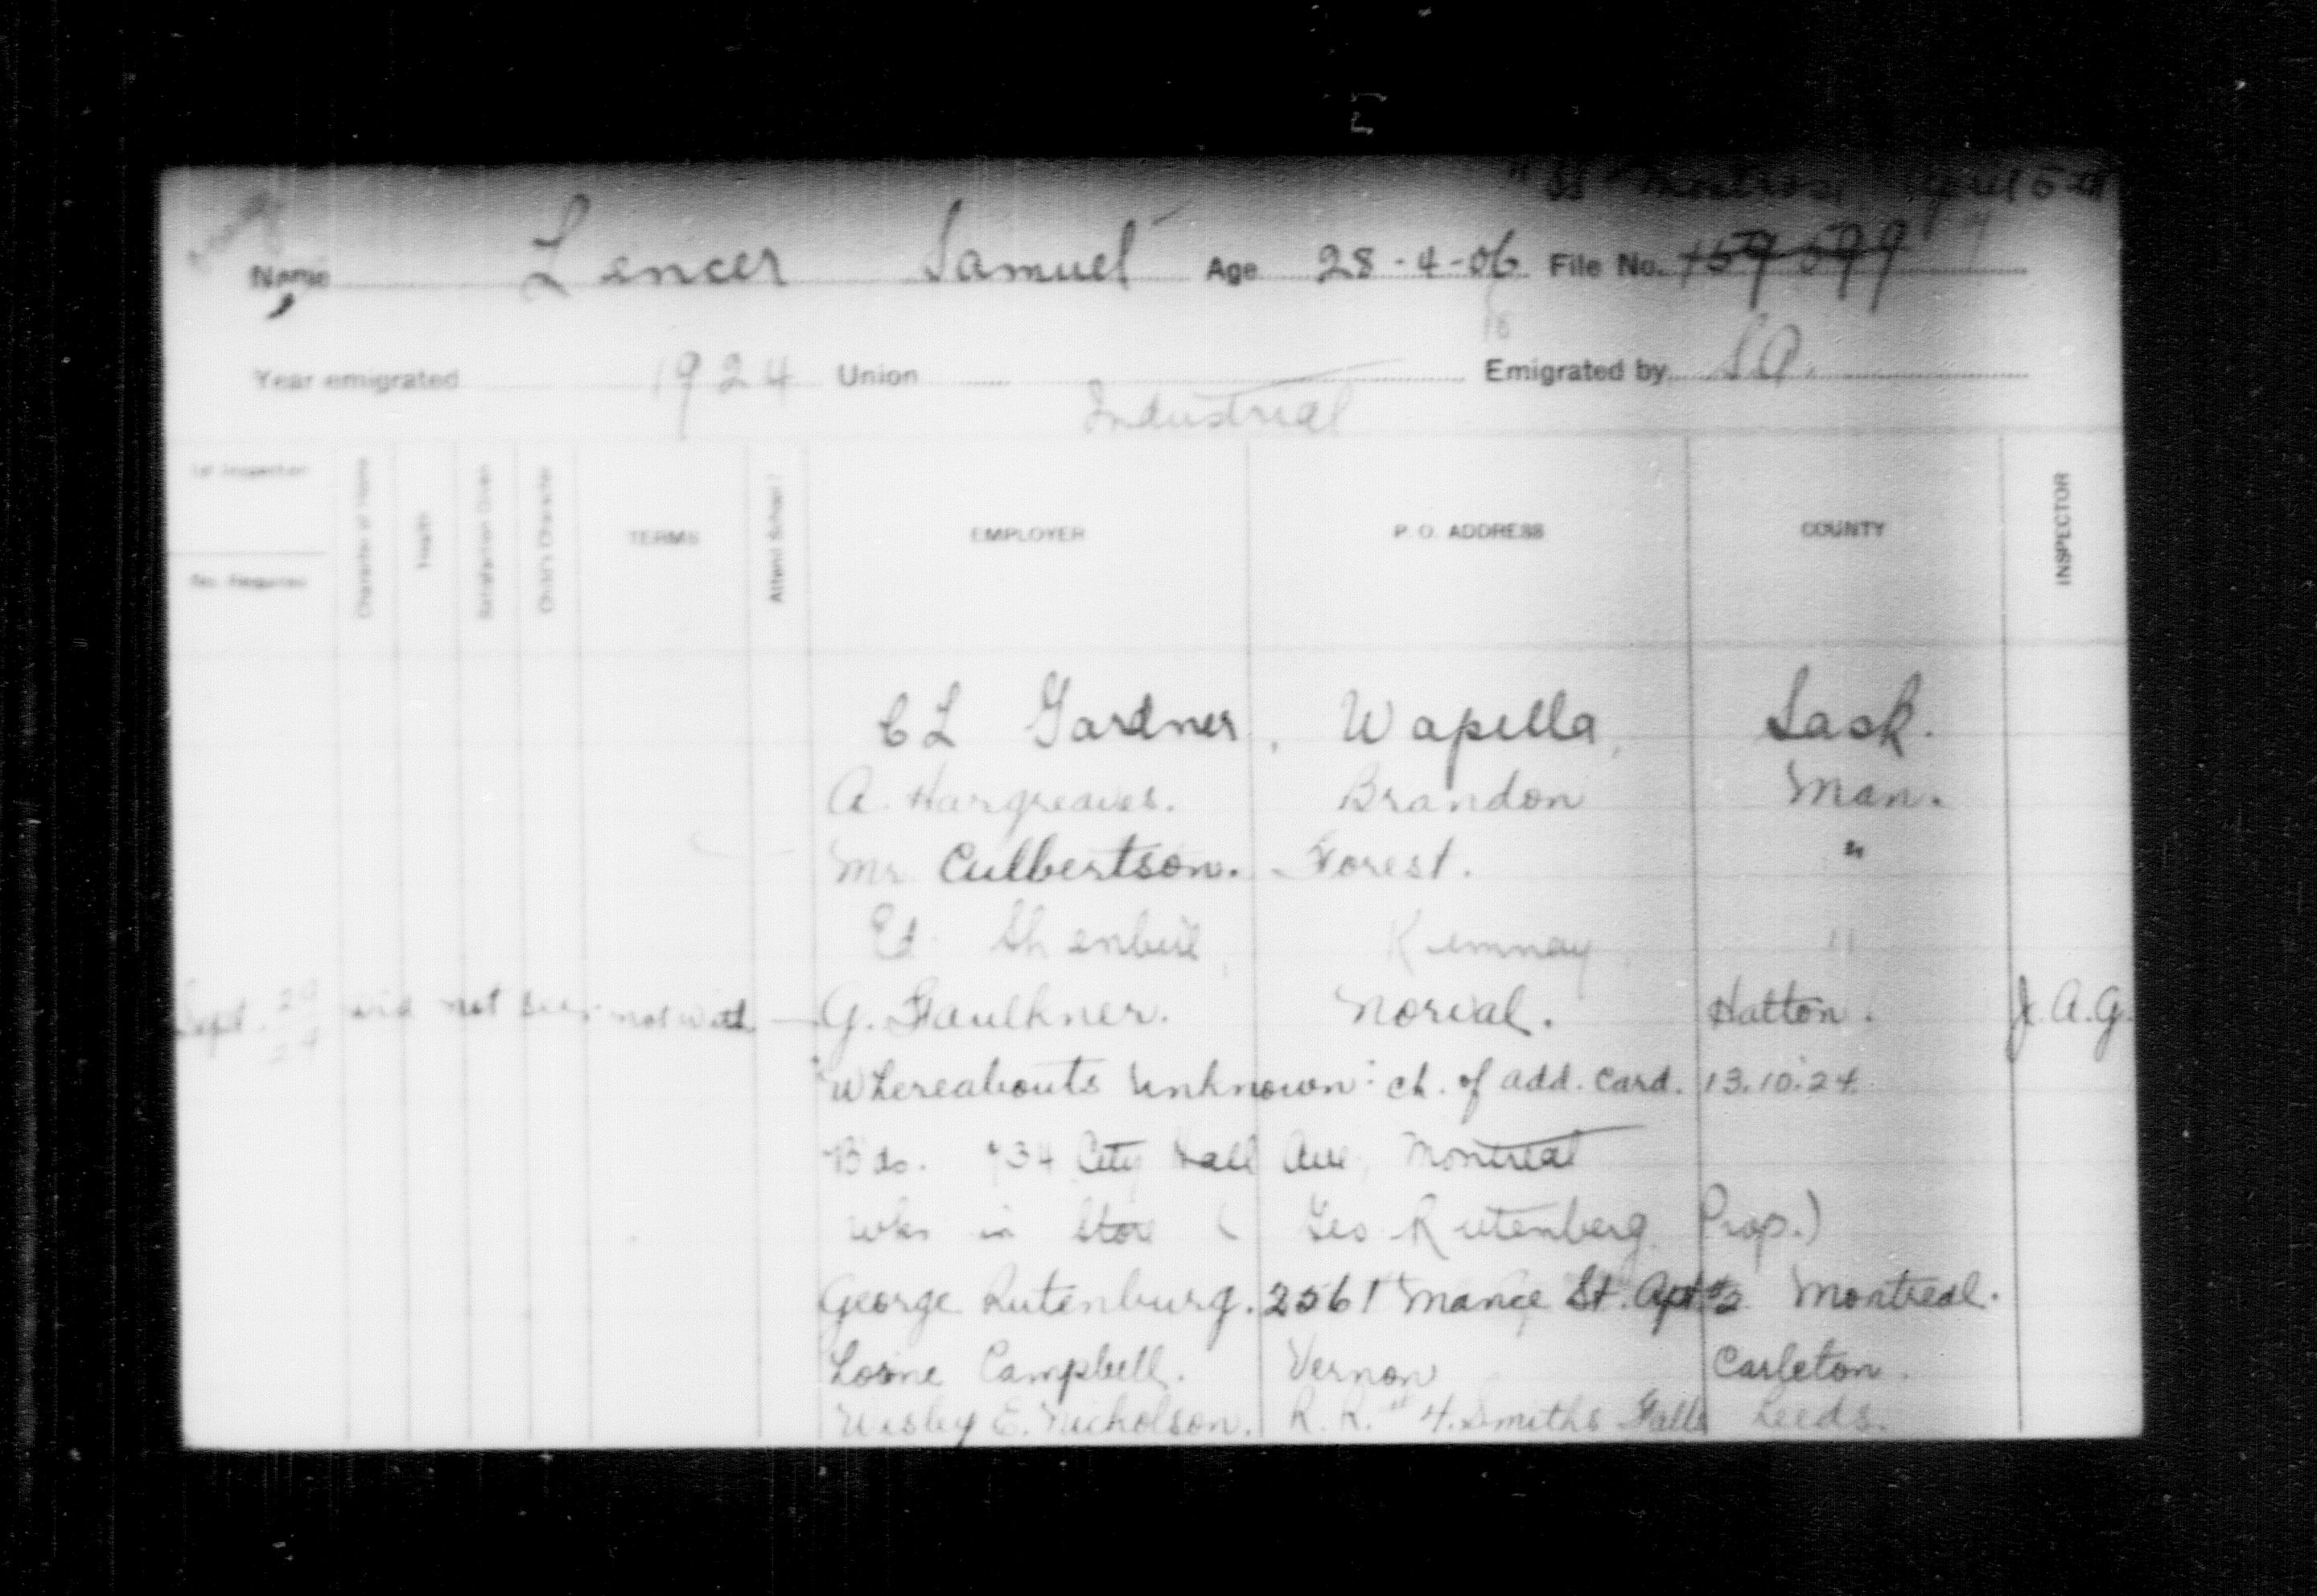 "SS Montrose
Name Lencer Samuel Age 28-4-06 File No. 159599
18
Year emigrated 1924 Union Emigrated by S.A.
Industrial
1st Inspection No. Required Character of Home Health Satisfaction Given Child's Character TERMS Attend School? EMPLOYER P. O. ADDRESS COUNTY INSPECTOR
C L Gardner, Wapella, Sask.
A. Hargreaves. Brandon Man.
Mr. Culbertson. Forest. "
Ed. Kemnay "
Sept. 29 24 did not see. not with — G. Faulkner. Norval. Halton. J.A.G.
"Whereabouts Unknown" ch. of add. card. 13.10.24.
Bds. 734 City Hall Ave, Montreal
wks in store ( Geo. Rutenberg Prop.)
George Rutenburg. 2561 Mance St. Apt #2 Montreal.
Lorne Campbell. Vernon Carleton.
Wesley E. Nicholson. R.R. # 4. Smiths Falls Leeds.